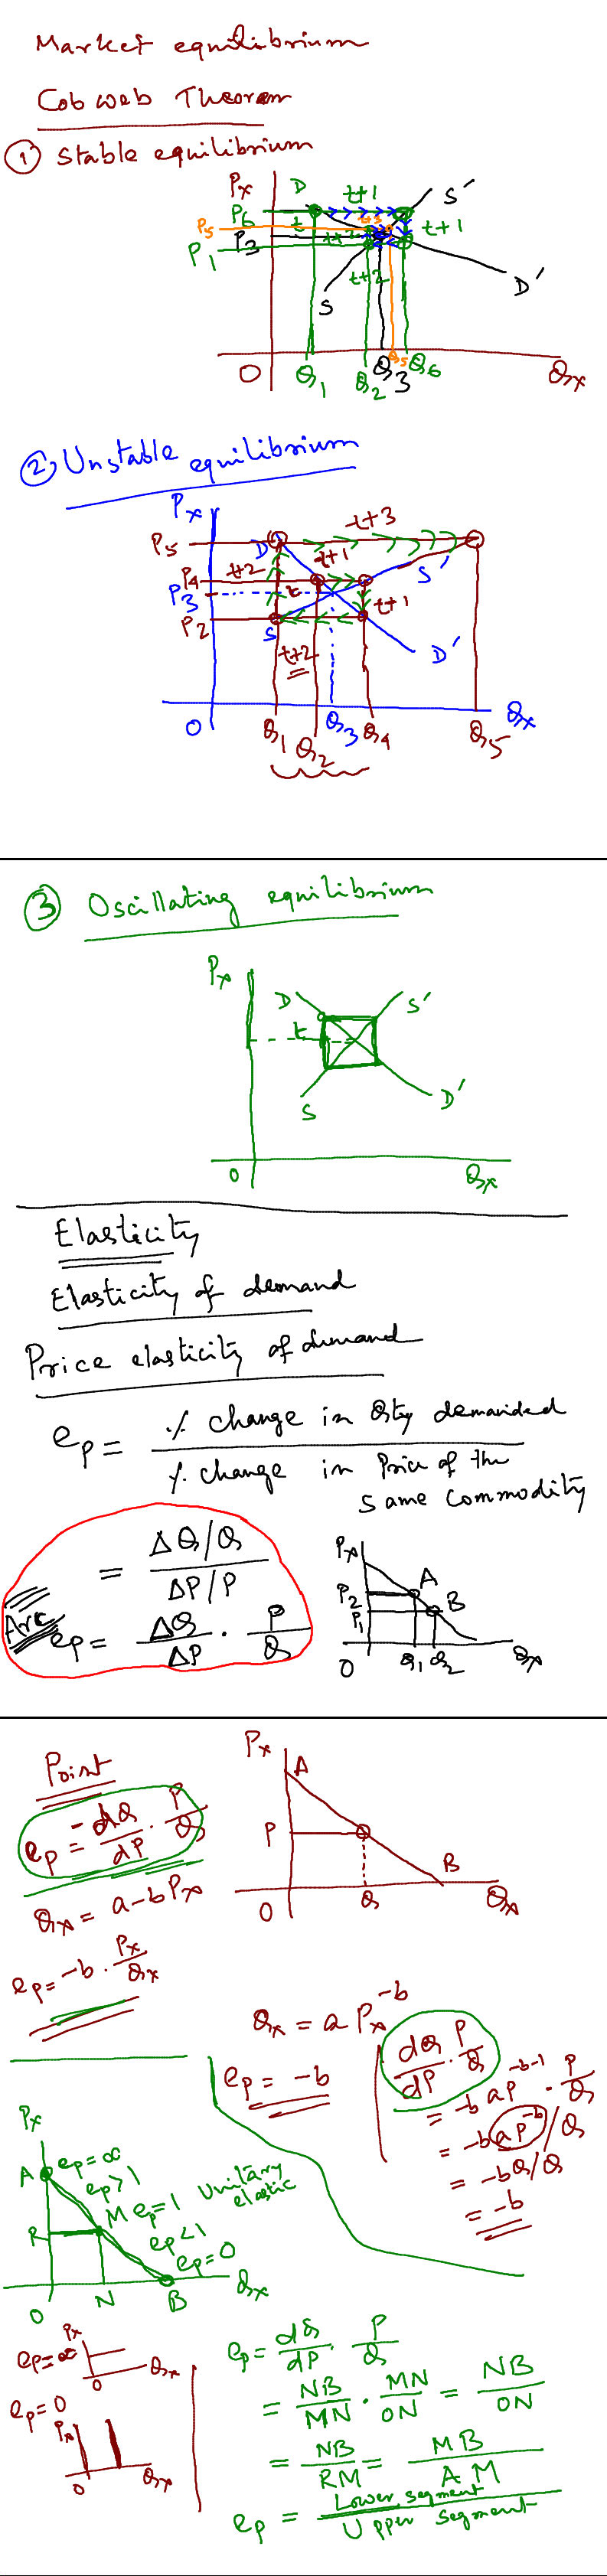 Market equilibrium
Cobweb Theorem
① Stable equilibrium
Px
D
t+1
S'
P6
t
t+3
P5
t+1
P3
P1
t+2
S
D'
O
Q1
Q2
Q3
Q5
Q6
Qx
② Unstable equilibrium
Px
t+3
P5
D
t+2
t+1
P4
S'
P3
t
t+1
P2
S
D'
t+2
O
Q1
Q2
Q3
Q4
Q5
Qx
③ Oscillating equilibrium
Px
D
S'
t
S
D'
O
Qx
Elasticity
Elasticity of demand
Price elasticity of demand
ep = % change in Qty demanded
% change in Price of the
same commodity
= ΔQ/Q
ΔP/P
Arc ep = ΔQ/ΔP · P/Q
Px
A
P2
B
P1
O
Q1
Q2
Qx
Point
Px
A
ep = -dQ/dP · P/Q
P
B
O
Q
Qx
Qx = a - bPx
ep = -b · Px/Qx
Qx = a Px^-b
ep = -b
dQ/dP · P/Q
= -b a p^-b-1 · P/Q
= -b a p^-b / Q
= -bQ/Q
= -b
Px
A
ep = ∞
ep > 1
M ep = 1 Unitary
elastic
R
ep < 1
ep = 0
O
N
B
Qx
Px
ep = ∞
O
Qx
ep = 0
Px
O
Qx
ep = dQ/dP · P/Q
= NB/MN · MN/ON = NB/ON
= NB/RM = MB/AM
ep = Lower segment
Upper segment